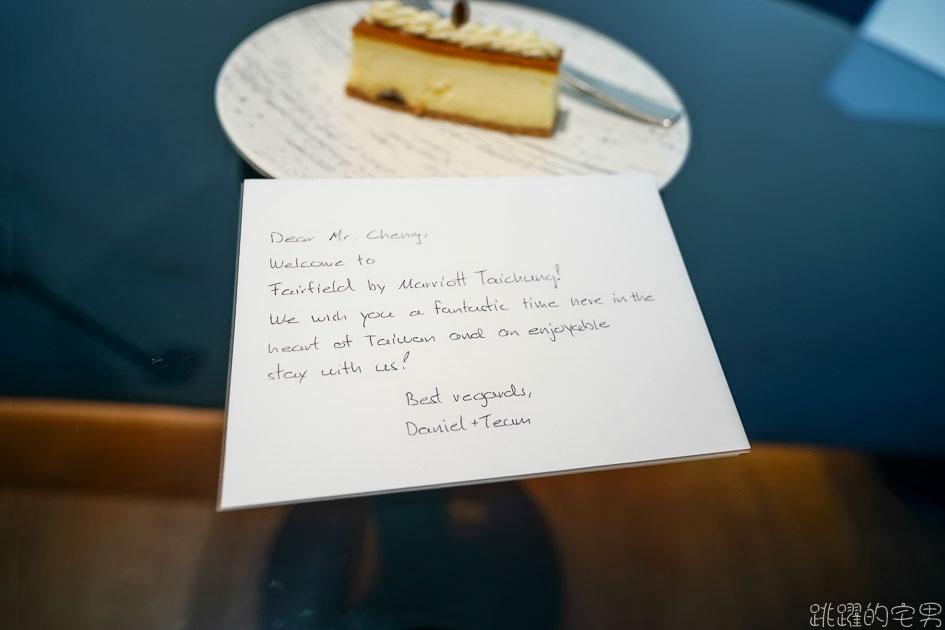 Dear Mr. Cheng,
Welcome to
Fairfield by Marriott Taichung!
We wish you a fantastic time here in the
heart of Taiwan and an enjoyable
stay with us!
Best regards,
Daniel + Team
跳躍的宅男